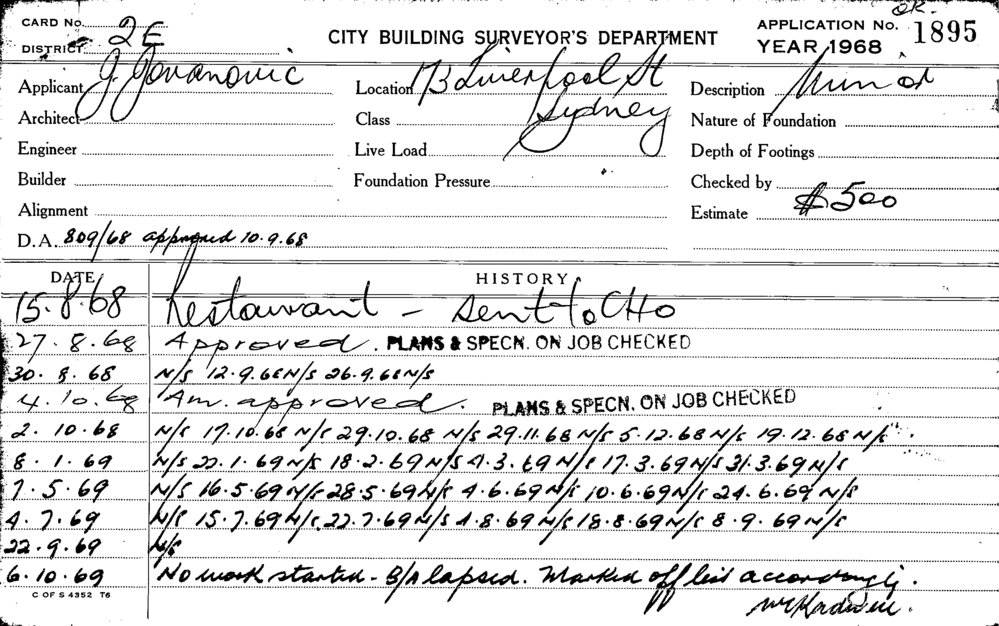 CARD No. 2E
DISTRICT
CITY BUILDING SURVEYOR'S DEPARTMENT
APPLICATION No. OK. 1895
YEAR 1968
Applicant J. Jovanovic
Location 173 Liverpool St
Sydney
Description Minor
Architect
Class
Nature of Foundation
Engineer
Live Load
Depth of Footings
Builder
Foundation Pressure
Checked by
Alignment
Estimate $500
D.A. 809/68 approved 10.9.68
DATE HISTORY
15.8.68 Restaurant - sent to CHO
27.8.68 Approved. PLANS & SPECN. ON JOB CHECKED
30.8.68 N/S 12.9.68 N/S 26.9.68 N/S
4.10.68 Am. approved. PLANS & SPECN. ON JOB CHECKED
2.10.68 N/S 17.10.68 N/S 29.10.68 N/S 29.11.68 N/S 5.12.68 N/S 19.12.68 N/S
8.1.69 N/S 22.1.69 N/S 18.2.69 N/S 4.3.69 N/S 17.3.69 N/S 31.3.69 N/S
7.5.69 N/S 16.5.69 N/S 28.5.69 N/S 4.6.69 N/S 10.6.69 N/S 24.6.69 N/S
4.7.69 N/S 15.7.69 N/S 22.7.69 N/S 4.8.69 N/S 18.8.69 N/S 8.9.69 N/S
22.9.69 N/S
6.10.69 No work started - B/A lapsed. Marked off list accordingly.
C OF S 4352 T6